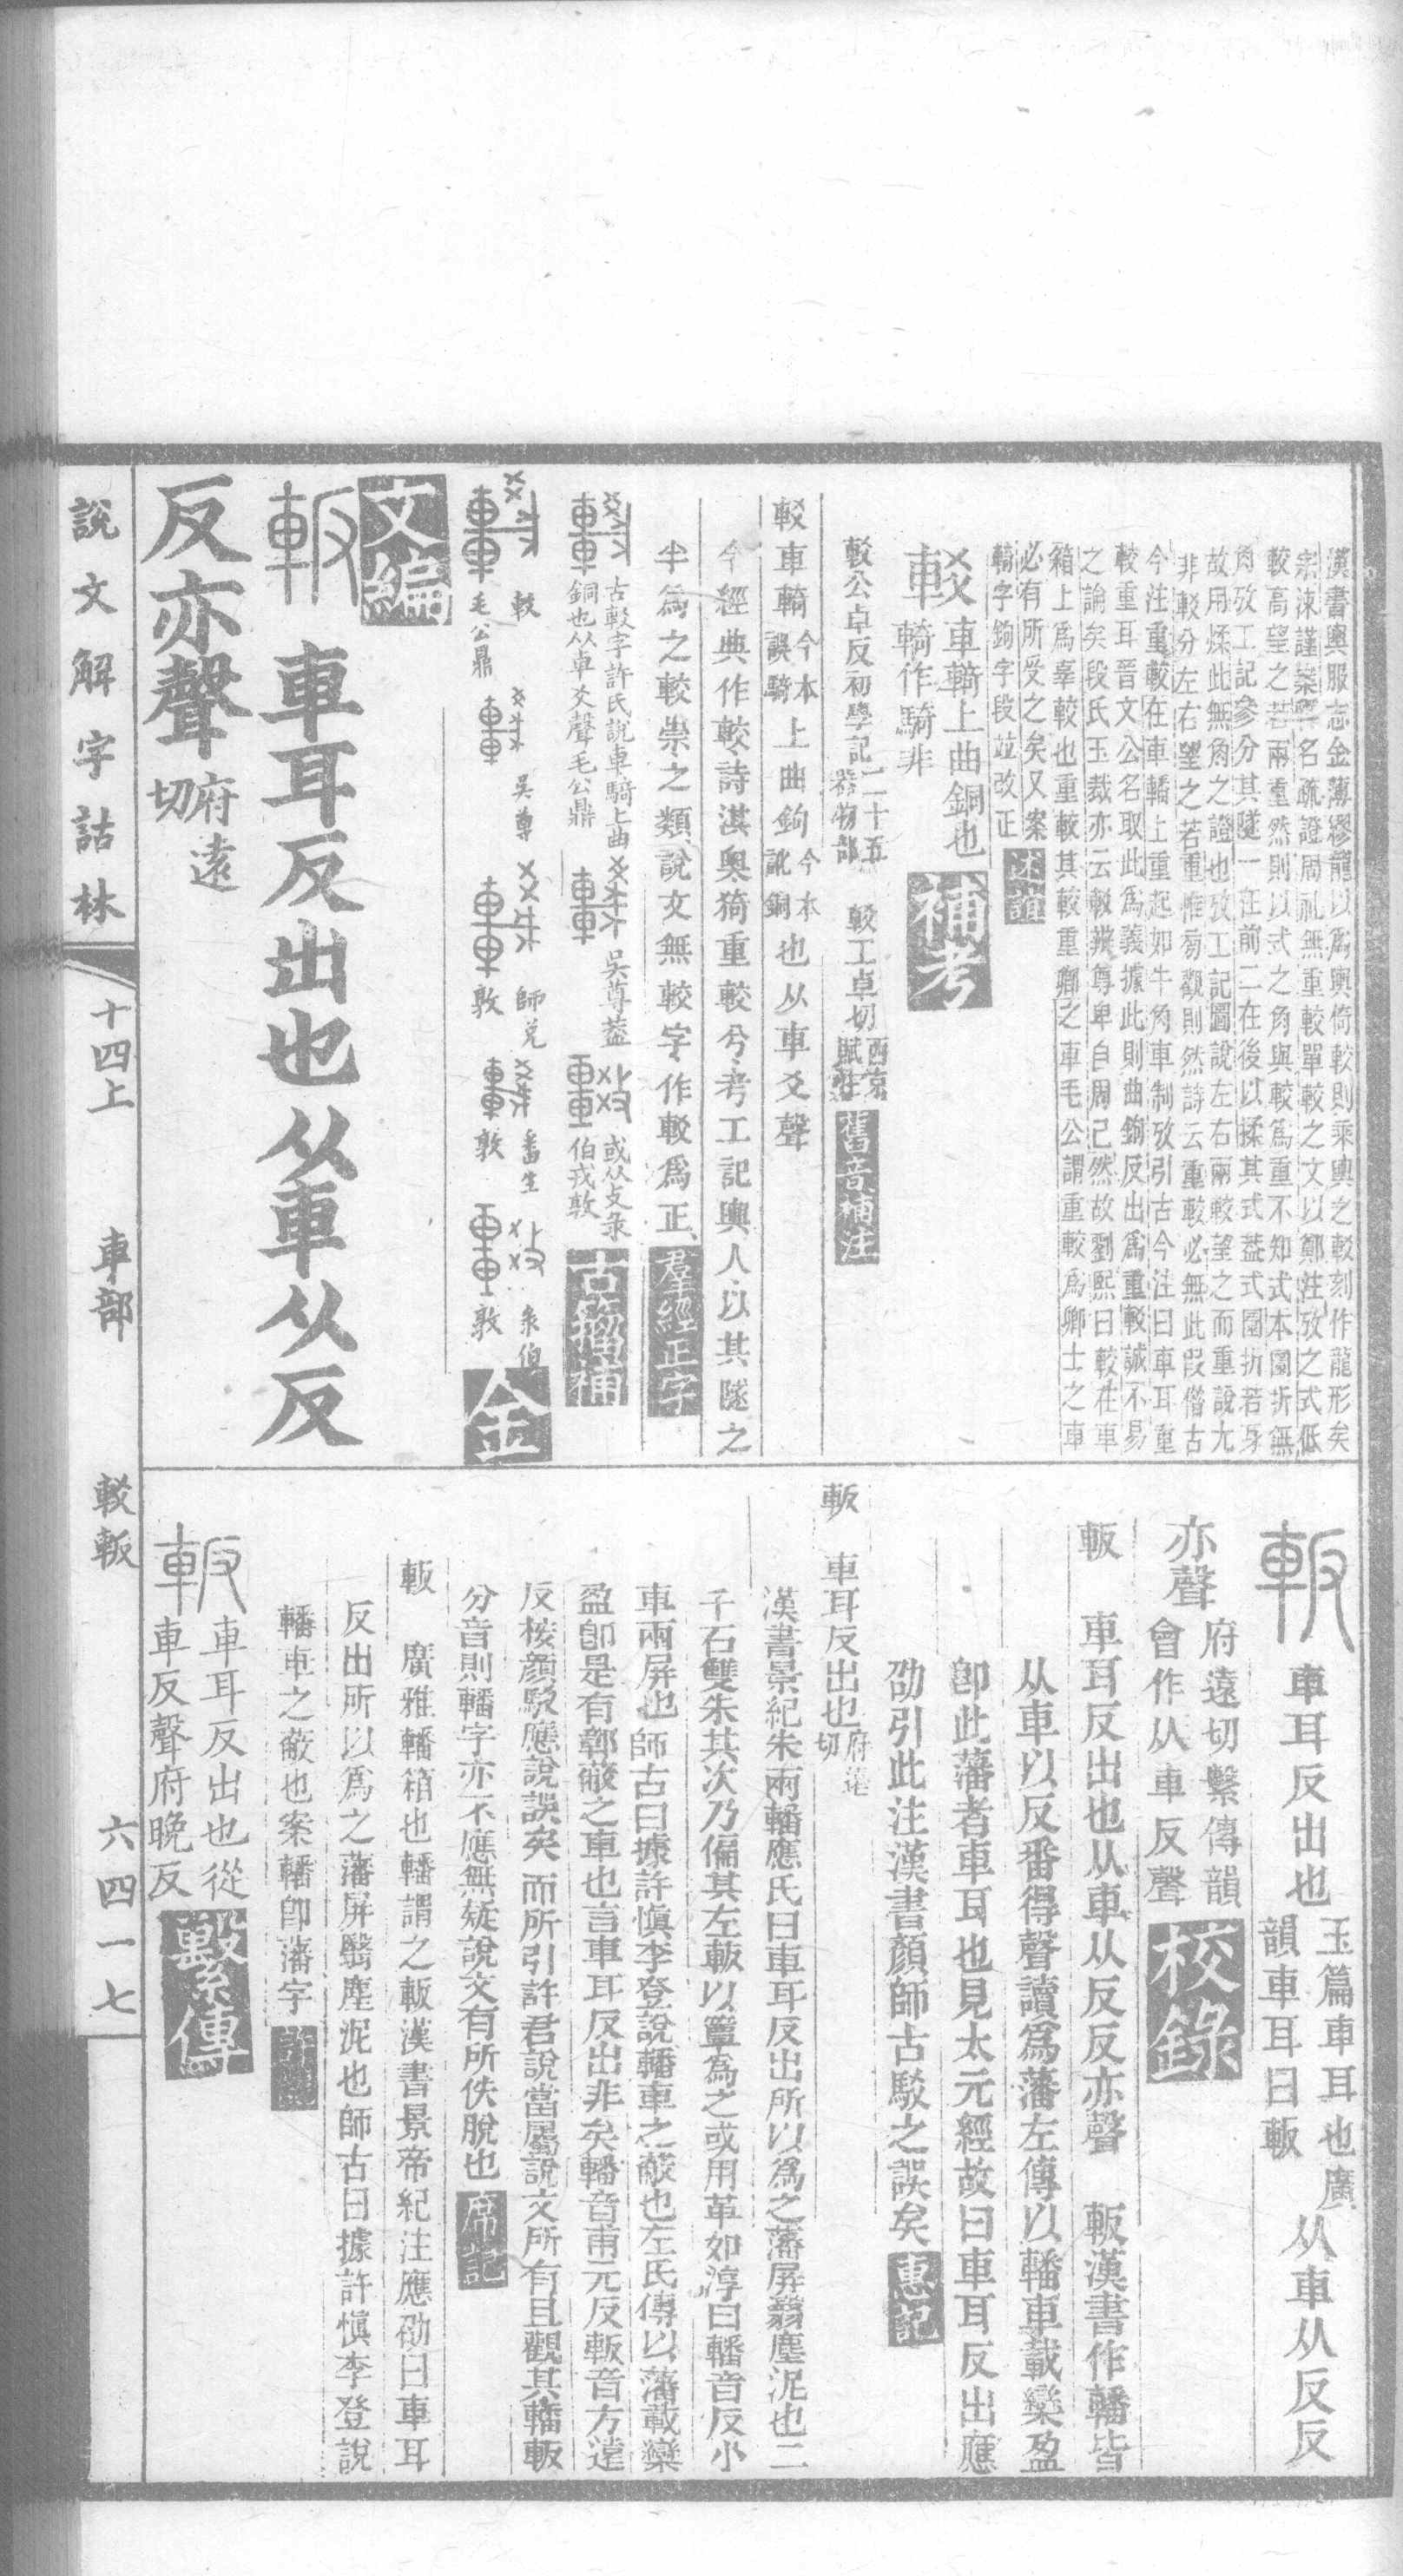 漢書輿服志金薄繆龍以爲輿倚較則乘輿之較刻作龍形矣
較高望之若兩重然則以式之角與較爲重不知式本圜折無
角攷工記參分其隧一在前二在後以揉其式葢式圜折若身
故用揉此無角之證也攷工記圖說左右兩較望之而重說尤
今注重較在車轓上重起如牛角車制攷引古今注曰車耳重
較重耳晉文公名取此爲義據此則曲鉤反出爲重較誠不易
箱上爲辜較也重較其較重卿之車毛公謂重較爲卿士之車
必有所受之矣又案
輢字鉤字段竝改正
較車輢上曲銅也
輢作騎非
補考
較公卓反初學記二十五器物部
較工卓切西京賦注
舊音補注
較車輢今本誤騎上曲鉤今本訛銅也从車爻聲
今經典作較詩淇奧猗重較兮考工記輿人以其隧之
半爲之較崇之類說文無較字作較爲正
羣經正字
古較字許氏說車騎上曲
銅也从卓爻聲毛公鼎
吳尊葢
或从攴彔
伯戎敦
古籀補
較
毛公鼎
吳尊
師兌
敦
番生
敦
彔伯
敦
金
文編
車耳反出也从車从反
反亦聲府遠切
說文解字詁林
十四上
車部
較軓
六四一七
車耳反出也玉篇車耳也廣韻車耳曰軓从車从反反
亦聲府遠切繫傳韻會作从車反聲
校錄
軓 車耳反出也从車从反反亦聲 軓漢書作轓皆
从車以反番得聲讀爲藩左傳以轓車載欒盈
卽此藩者車耳也見太元經故曰車耳反出應
劭引此注漢書顏師古駮之誤矣
惠記
軓 車耳反出也府遠切
漢書景紀朱兩轓應氏曰車耳反出所以爲之藩屏翳塵泥也二
千石雙朱其次乃偏其左軓以簟爲之或用革如淳曰轓音反小
車兩屏也師古曰據許慎李登說轓車之蔽也左氏傳以藩載欒
盈卽是有鄣蔽之車也言車耳反出非矣轓音甫元反軓音方遠
反桉顏駮應說誤矣而所引許君說當屬說文所有且觀其轓軓
分音則轓字亦不應無疑說文有所佚脫也
席記
軓 廣雅轓箱也轓謂之軓漢書景帝紀注應劭曰車耳
反出所以爲之藩屏翳塵泥也師古曰據許慎李登說
轓車之蔽也案轓卽藩字
車耳反出也從
車反聲府晚反
繫傳